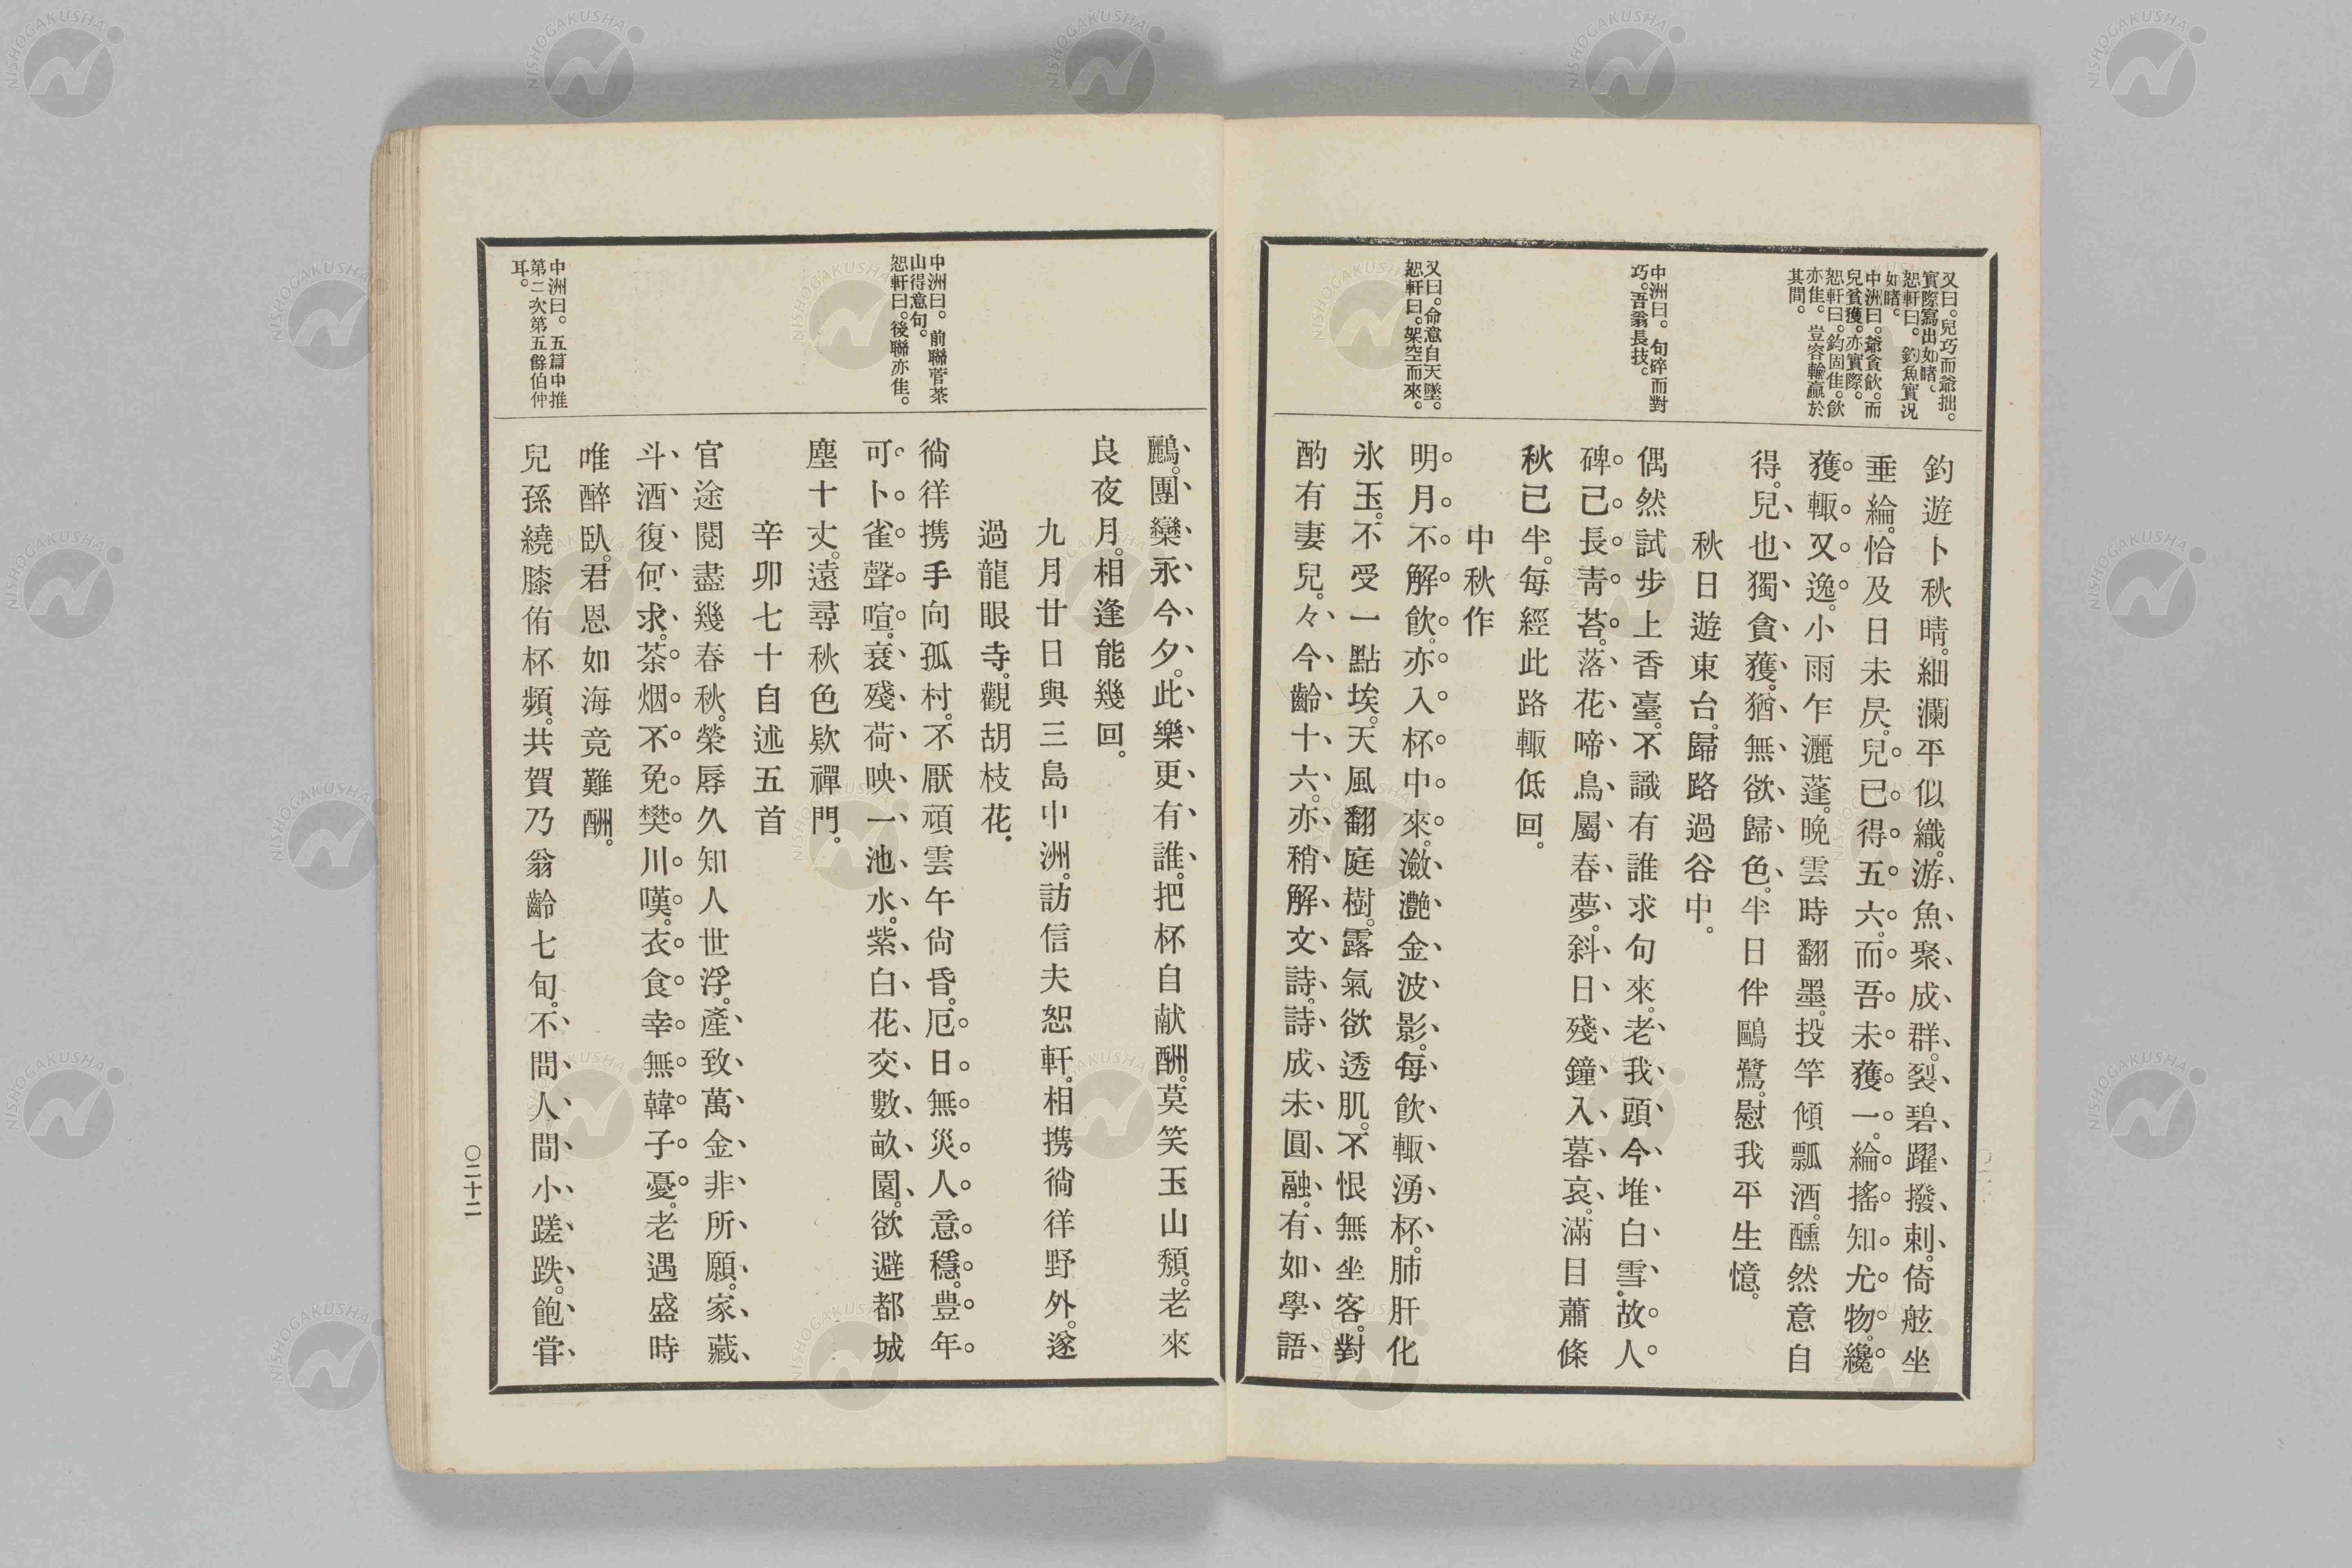 又曰。兒巧而爺拙。
實際寫出如睹。
恕軒曰。釣魚實況
如睹。
中洲曰。爺貪飲。而
兒貧獲。亦實際。
恕軒曰。釣固佳。飮
亦佳。豈容輸贏於
其間。
中洲曰。句碎而對
巧。吾翁長技。
又曰。命意自天墜。
恕軒曰。架空而來。
釣遊卜秋晴。細瀾平似織。游魚聚成群。裂碧躍撥刺。倚舷坐
垂綸。恰及日未昃。兒已得五六。而吾未獲一。綸搖知尤物。纔
獲輙又逸。小雨乍灑蓬。晩雲時翻墨。投竿傾瓢酒。醺然意自
得。兒也獨貪獲。猶無欲歸色。半日伴鷗鷺。慰我平生憶。
秋日遊東台。歸路過谷中。
偶然試步上香臺。不識有誰求句來。老我頭今堆白雪。故人
碑已長靑苔。落花啼鳥屬春夢。斜日殘鐘入暮哀。滿目蕭條
秋已半。每經此路輙低回。
中秋作
明月不解飮。亦入杯中來。瀲灩金波影。每飮輙湧杯。肺肝化
氷玉。不受一點埃。天風翻庭樹。露氣欲透肌。不恨無坐客。對
酌有妻兒。々今齡十六。亦稍解文詩。詩成未圓融。有如學語
鸝。團欒永今夕。此樂更有誰。把杯自献酬。莫笑玉山頽。老來
良夜月。相逢能幾回。
九月廿日與三島中洲。訪信夫恕軒。相携徜徉野外。遂
過龍眼寺。觀胡枝花。
徜徉携手向孤村。不厭頑雲午尙昏。厄日無災人意穩。豊年
可卜雀聲喧。衰殘荷映一池水。紫白花交數畝園。欲避都城
塵十丈。遠尋秋色欵禪門。
辛卯七十自述五首
官途閱盡幾春秋。榮辱久知人世浮。產致萬金非所願。家藏
斗酒復何求。茶烟不免樊川嘆。衣食幸無韓子憂。老遇盛時
唯醉臥。君恩如海竟難酬。
兒孫繞膝侑杯頻。共賀乃翁齡七旬。不問人間小蹉跌。飽嘗
中洲曰。前聯菅茶
山得意句。
恕軒曰。後聯亦佳。
中洲曰。五篇中推
第二次第五餘伯仲
耳。
〇二十二
NISHOGAKUSHA